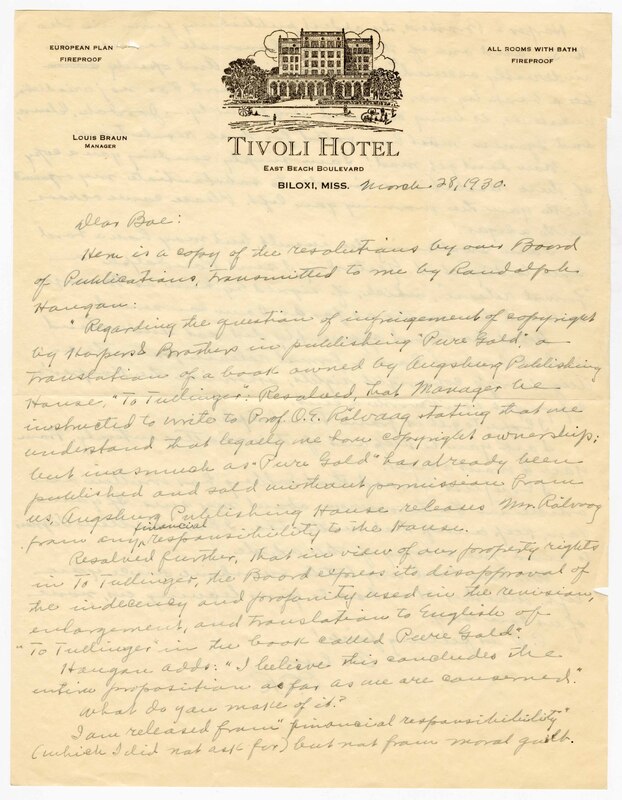 EUROPEAN PLAN
FIREPROOF
ALL ROOMS WITH BATH
FIREPROOF
LOUIS BRAUN
MANAGER
TIVOLI HOTEL
EAST BEACH BOULEVARD
BILOXI, MISS. March 28, 1930.
Dear Boe:
Here is a copy of the resolutions by our Board
of Publications, transmitted to me by Randolph
Haugan:
"Regarding the question of infringement of copyright
by Harpers & Brothers in publishing "Pure Gold", a
translation of a book owned by Augsburg Publishing
House, "To Tullinger": Resolved, that Manager be
instructed to write to Prof. O. E. Rölvaag stating that we
understand that legally we have copyright ownership;
but inasmuch as "Pure Gold" has already been
published and sold without permission from
us, Augsburg Publishing House releases Mr. Rölvaag
from any financial responsibility to the House.
Resolved further, that in view of our property rights
in To Tullinger, the Board express its disapproval of
the indecency and profanity used in the revision,
enlargement, and translation to English of
"To Tullinger" in the book called "Pure Gold".
Haugan adds: "I believe this concludes the
entire proposition as far as we are concerned."
What do you make of it?
I am released from "financial responsibility"
(which I did not ask for) but not from moral guilt.